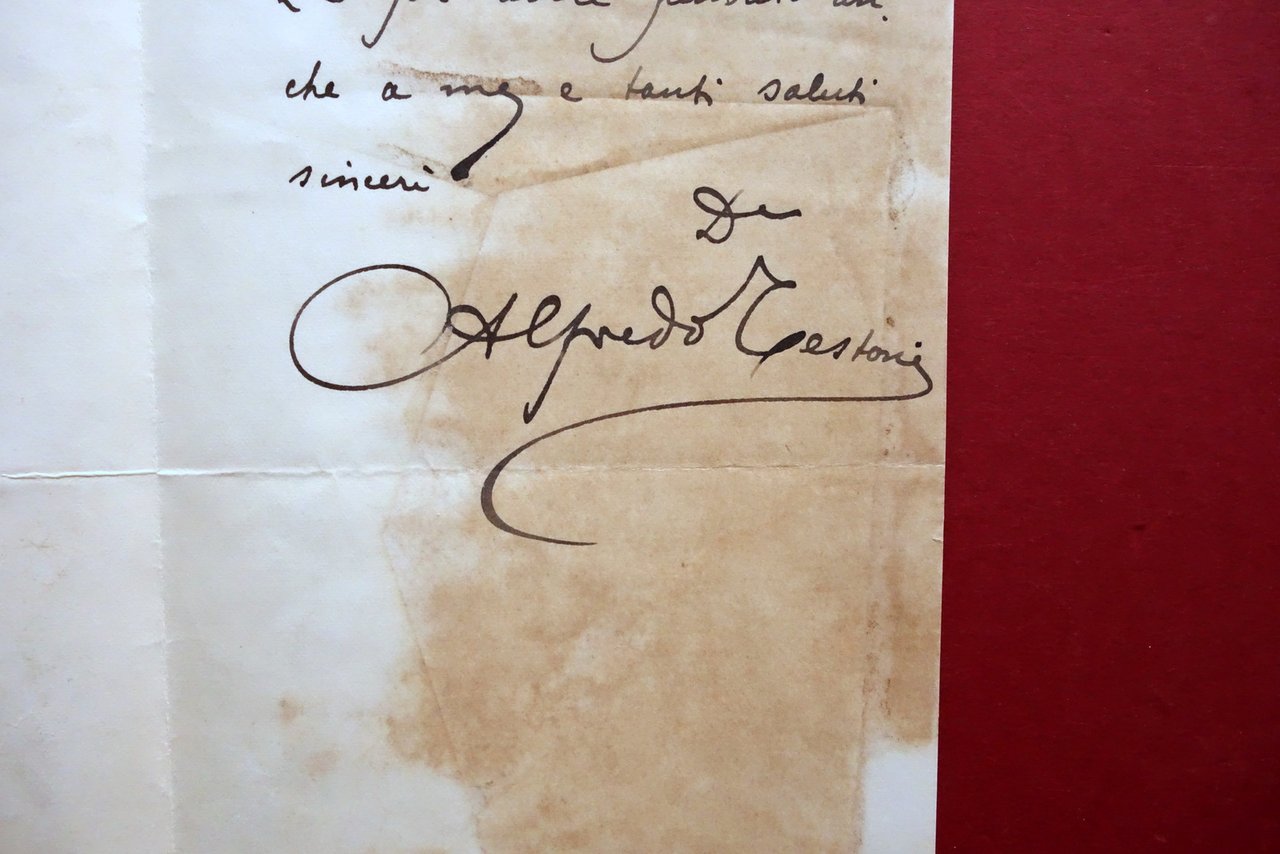 per
che a me e tanti saluti
sinceri
De
Alfredo Testoni